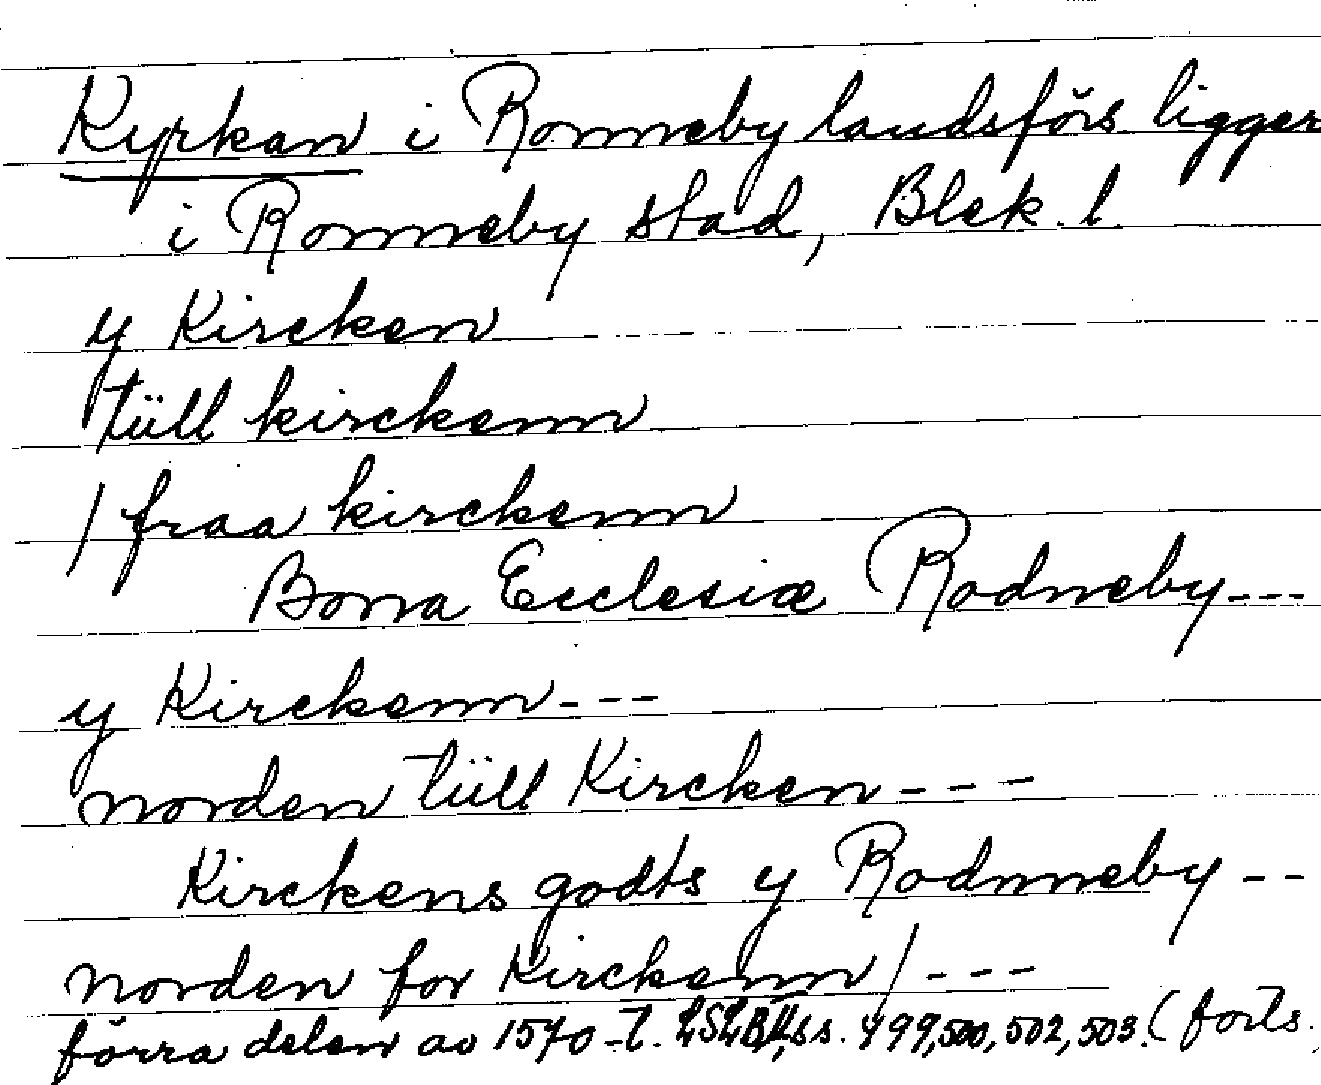 Kyrkan i Ronneby landsförs ligger
i Ronneby stad, Blek. l.
y Kircken
tüll kirckenn
/ fraa kirckenn
Bona Ecclesiæ Rodneby---
y Kirckenn---
norden tüll Kircken---
Kirckens godts y Rodnneby--
norden for Kirckenn/---
förra delen av 1570-t. LSLB II, ss. 499, 500, 502, 503. (forts.